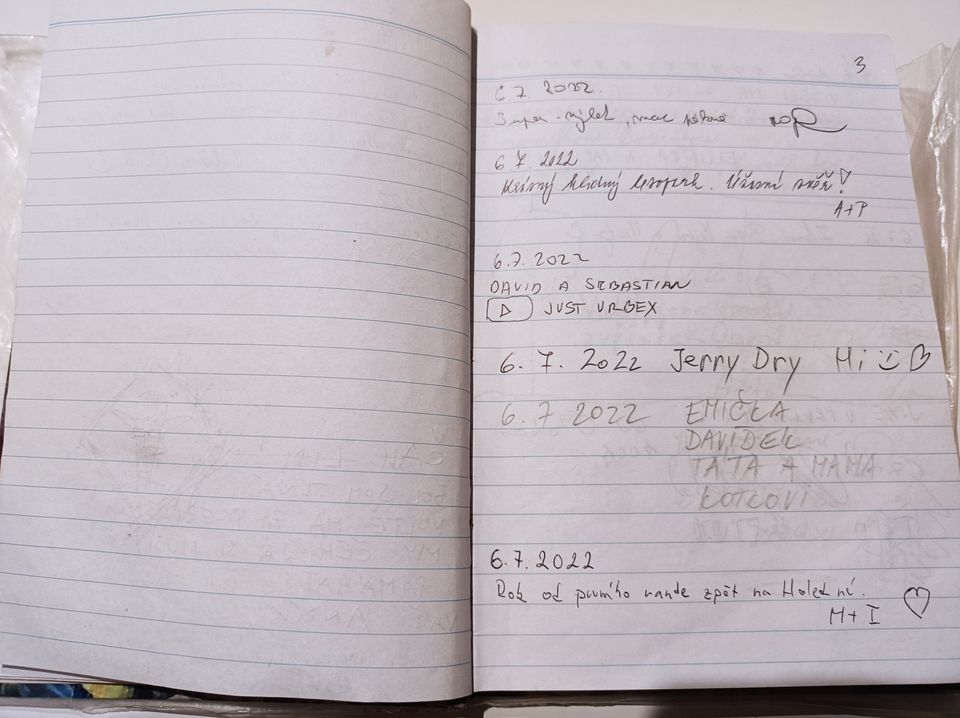 3
6 7. 2022.
Super výlet, moc pěkné
6 7. 2022
Krásný klidný lesopark. Úžasní zvěř!
A+P
6.7. 2022
DAVID A SEBASTIAN
JUST URBEX
6. 7. 2022 Jerry Dry Hi
6. 7 2022 EMIČKA
DAVÍDEK
TÁTA A MAMA
KOTKOVI
6.7.2022
Rok od prvního rande zpět na Holední.
M+I